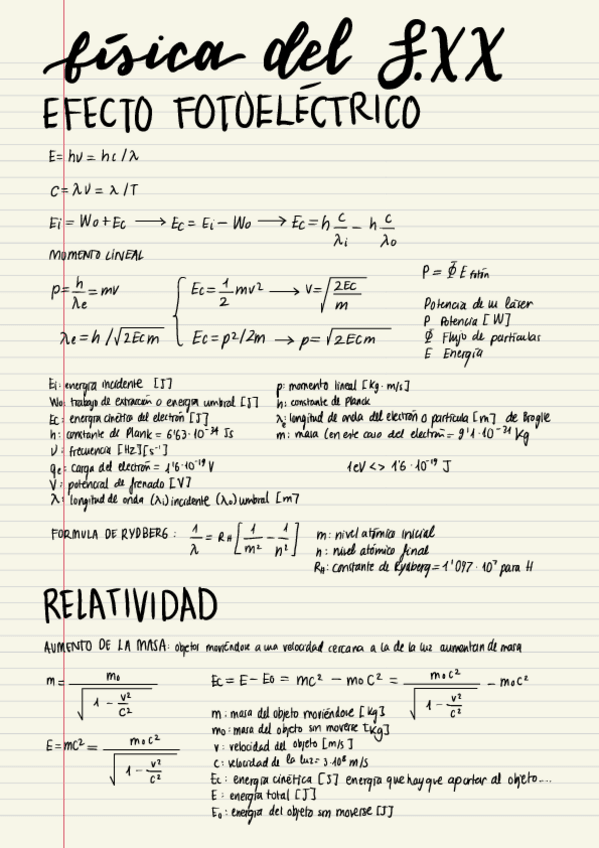 física del S.XX
EFECTO FOTOELÉCTRICO
E= hν = hc/λ
C= λν = λ/T
Ei = Wo + Ec → Ec = Ei - Wo → Ec = h c/λi - h c/λo
MOMENTO LINEAL
p = h/λe = mv
Ec = 1/2 mv² → v = √(2Ec/m)
λe = h/√2Ecm
Ec = p²/2m → p = √2Ecm
P = Φ E fotón
Potencia de un láser
P Potencia [W]
Φ Flujo de partículas
E Energía
Ei: energía incidente [J]
Wo: trabajo de extracción o energía umbral [J]
Ec: energía cinética del electrón [J]
h: constante de Plank = 6'63·10⁻³⁴ Js
ν: frecuencia [Hz][s⁻¹]
qe: carga del electrón = 1'6·10⁻¹⁹ V
V: potencial de frenado [V]
λ: longitud de onda (λi) incidente (λo) umbral [m]
p: momento lineal [kg·m/s]
h: constante de Planck
λe: longitud de onda del electrón o partícula [m] de Broglie
m: masa (en este caso del electrón = 9'1·10⁻³¹ Kg
1eV <> 1'6·10⁻¹⁹ J
FORMULA DE RYDBERG: 1/λ = RH [1/m² - 1/n²]
m: nivel atómico inicial
n: nivel atómico final
RH: constante de Rydberg = 1'097·10⁷ para H
RELATIVIDAD
AUMENTO DE LA MASA: objetos moviéndose a una velocidad cercana a la de la luz aumentan de masa
m = mo/√(1 - v²/c²)
Ec = E - Eo = mc² - moc² = moc²/√(1 - v²/c²) - moc²
E = mc² = moc²/√(1 - v²/c²)
m: masa del objeto moviéndose [Kg]
mo: masa del objeto sin moverse [Kg]
v: velocidad del objeto [m/s]
c: velocidad de la luz = 3·10⁸ m/s
Ec: energía cinética [J] energía que hay que aportar al objeto....
E: energía total [J]
Eo: energía del objeto sin moverse [J]